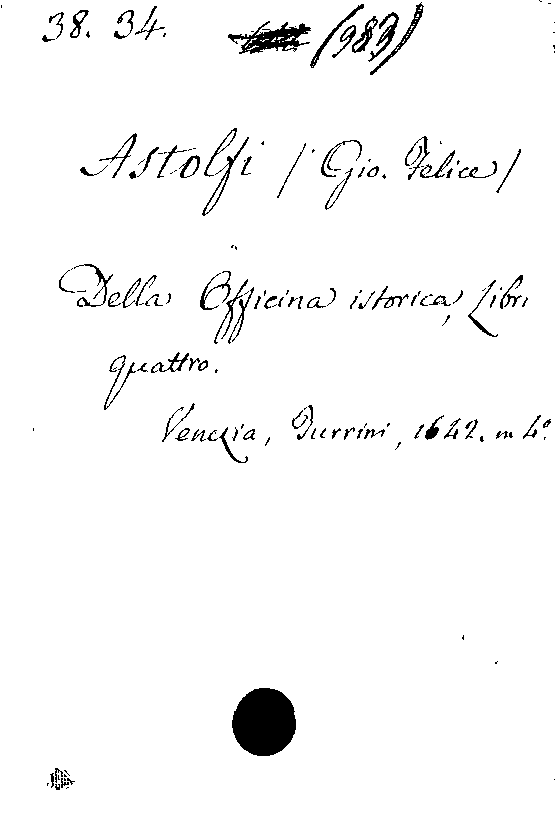 38. 34. (983)
Astolfi / Gio. Felice /
Della Officina istorica, Libri
quattro.
Venezia, Turrini, 1642. in 4º.